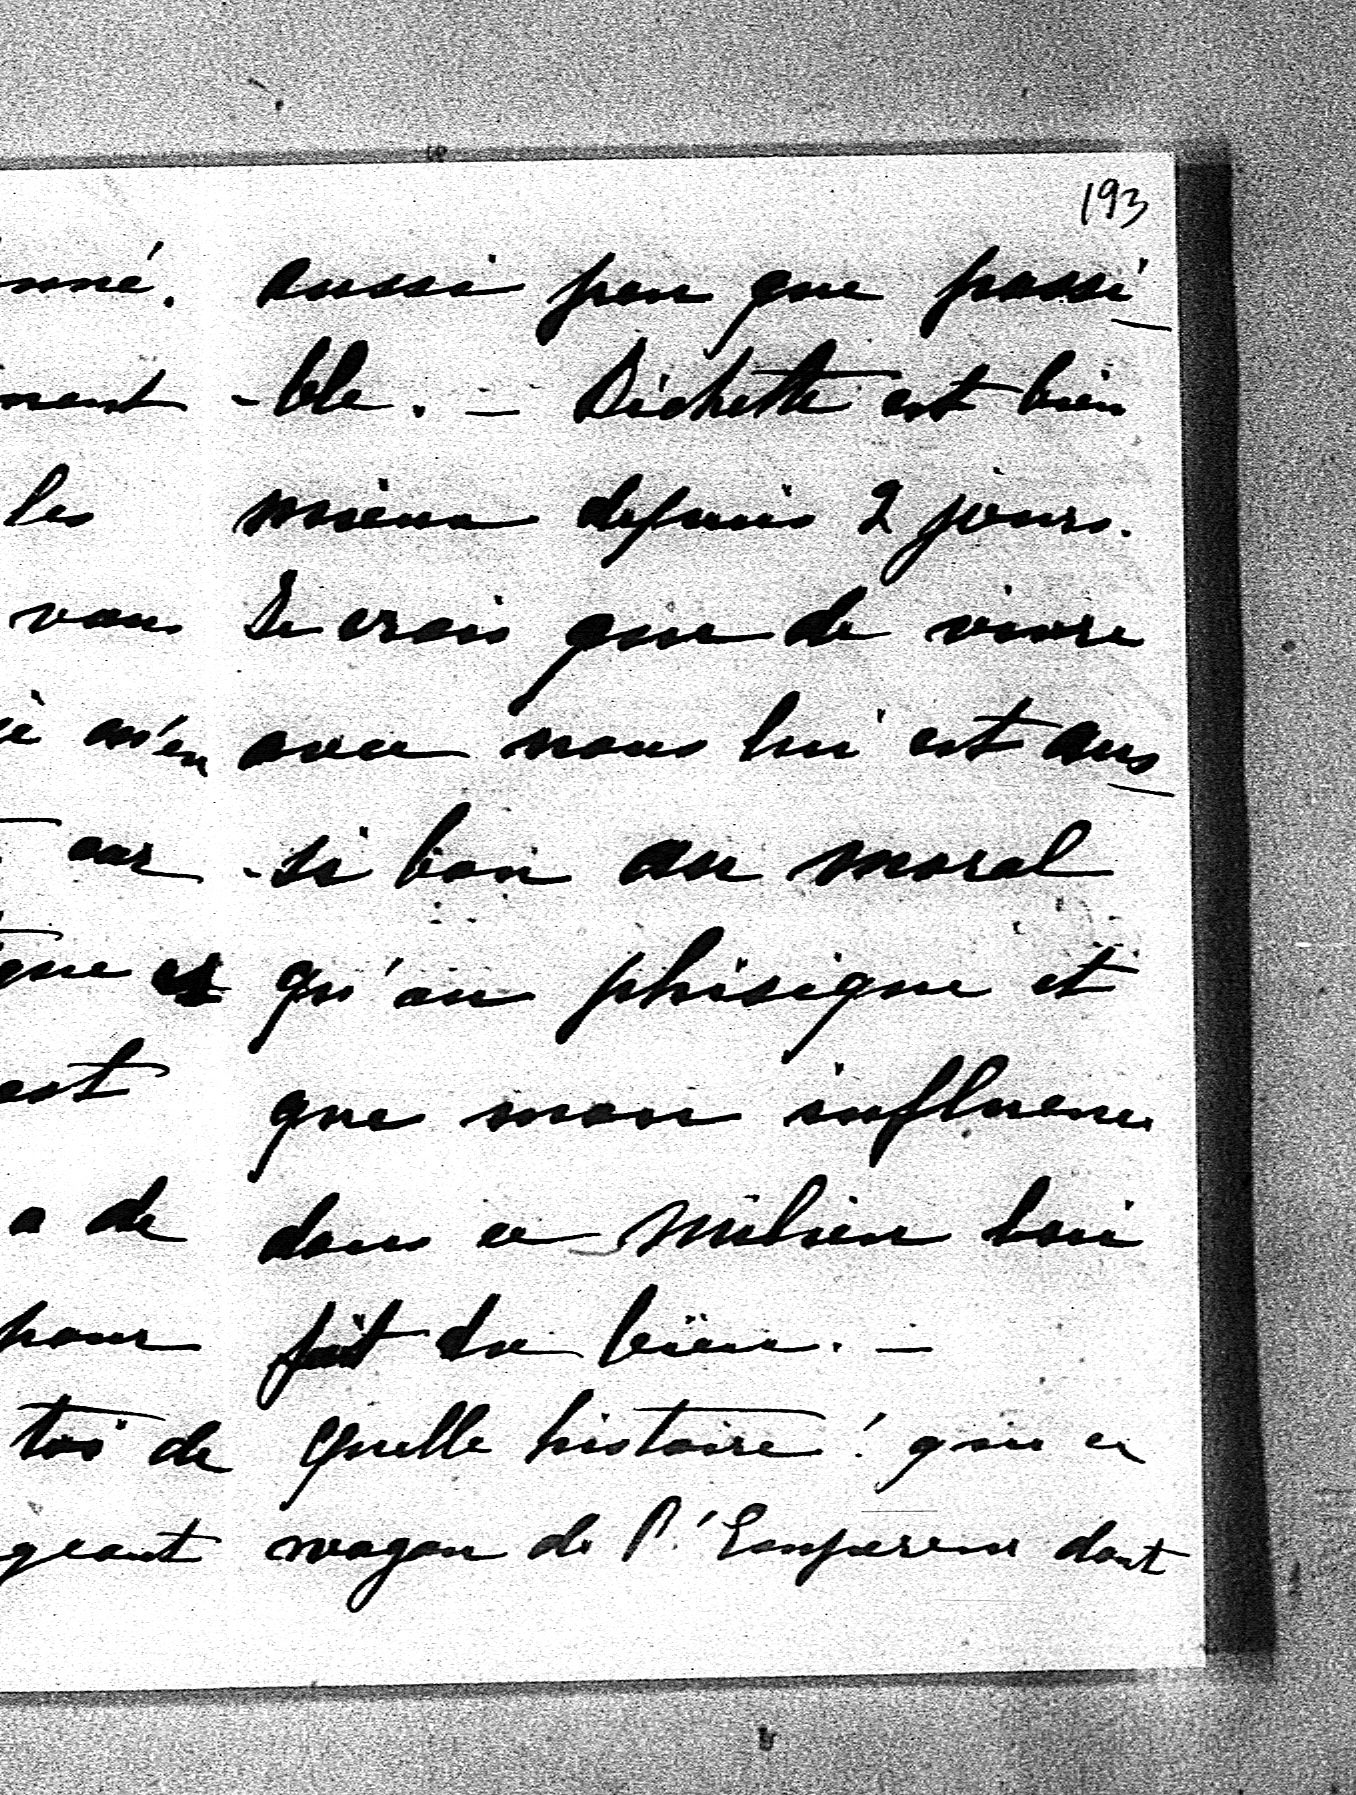 193
nné.
ment
les
vous
m'en
car
que et
est
a de
pour
toi de
geant
aussi peu que possi
-ble. — Dichette est bien
mieux depuis 2 jours.
Je crois que de vivre
avec nous lui est aus
-si bon au moral
qu'au phisique et
que mon influence
dans ce milieu lui
fait du bien. —
Quelle histoire! que ce
wagon de l'Empereur dont